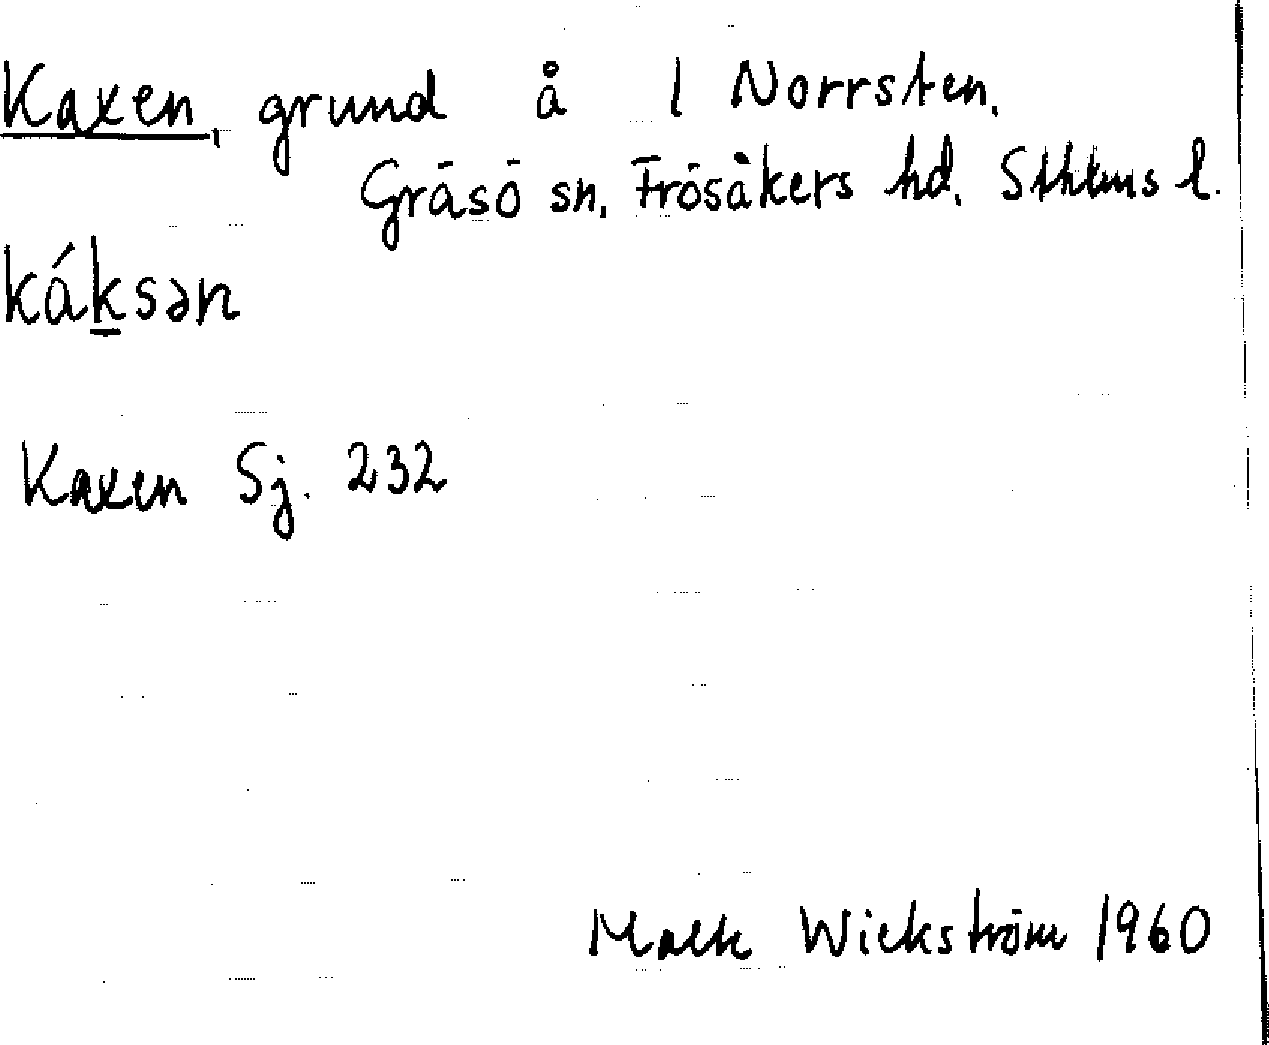 Kaxen, grund å 1 Norrsten.
Gräsö sn. Frösåkers hd. Sthlms l.
káksən
Kaxen Sj. 232
Wickström 1960